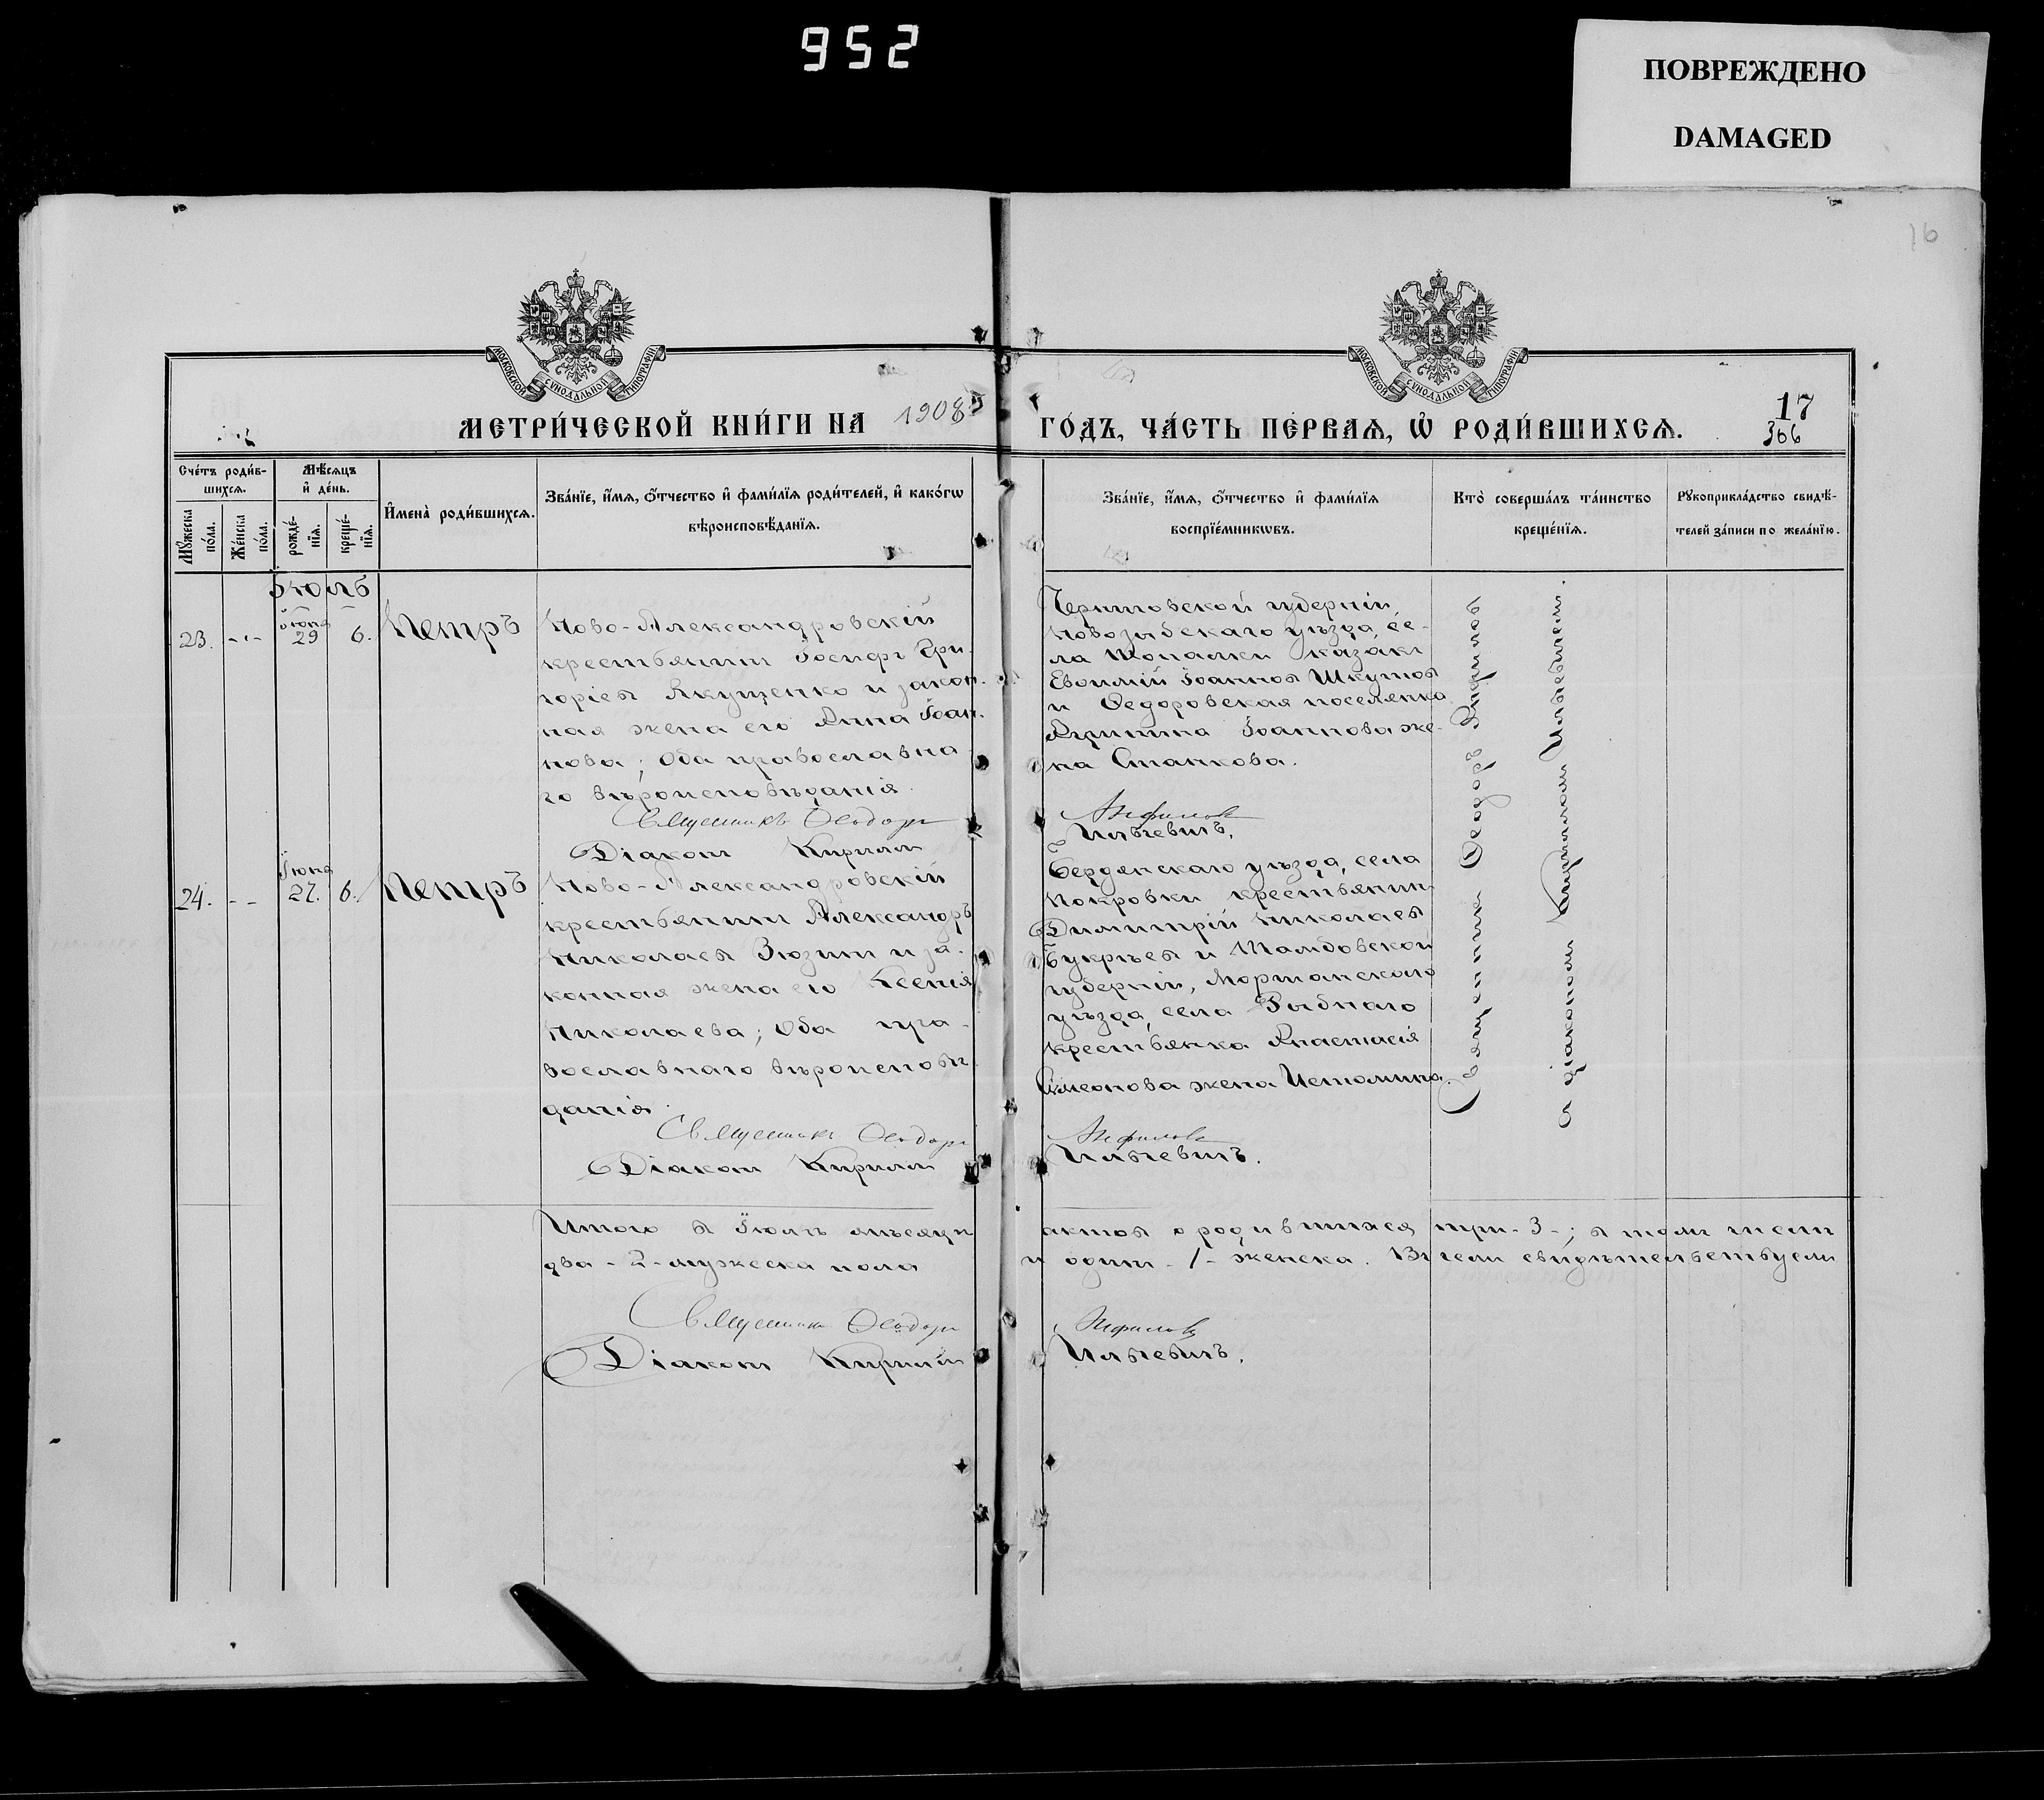 952
ПОВРЕЖДЕНО
DAMAGED
16
МОСКОВСКОЙ СѴНОДАЛЬНОЙ ТИПОГРАФІИ
МОСКОВСКОЙ СѴНОДАЛЬНОЙ ТИПОГРАФІИ
МЕТРИ́ЧЕСКОЙ КНИ́ГИ НА 1908
ГО́ДЪ, ЧА́СТЬ ПЕ́РВАѦ, Ѡ҆ РОДИ́ВШИХСѦ.
17
366
Сче́тъ роди́в-
шихсѧ.
Мꙋ́жеска по́ла.
Же́нска по́ла.
Мѣ́сѧцъ
и҆ де́нь.
рожде́-
нїѧ.
креще́-
нїѧ.
И҆мена̀ роди́вшихсѧ.
Зва́нїе, и҆́мѧ, ѻ҆́тчество и҆ фами́лїѧ роди́телей, и҆ како́гѡ
вѣроисповѣ́данїѧ.
Зва́нїе, и҆́мѧ, ѻ҆́тчество и҆ фами́лїѧ
воспрїе́мникѡвъ.
Кто̀ соверша́лъ та́инство
креще́нїѧ.
Рꙋкоприкла́дство свидѣ́-
телей за́писи по жела́нїю.
Іюль
23. -"- Іюня 29 6. Петръ
Ново-Александровскій
крестьянинъ Іосифъ Гри-
горіевъ Якущенко и закон-
ная жена его Анна Іоан-
нова; Оба православна-
го вѣроисповѣданія.
Священникъ Ѳеодоръ
Діаконъ Кириллъ
Черниговской губерніи,
Новозыбскаго уѣзда, се-
ла Топалки казакъ
Евѳимій Іоанновъ Шкутовъ
и Ѳедоровская поселянка
Агрипина Іоаннова же-
на Станкова.
Анфиловъ
Ильчевичъ.
24. - - Іюня 27. 6. Петръ
Ново-Александровскій
крестьянинъ Александръ
Николаевъ Зюзинъ и за-
конная жена его Ксенія
Николаева; Оба пра-
вославнаго вѣроисповѣ-
данія.
Священникъ Ѳеодоръ
Діаконъ Кириллъ
Бердянскаго уѣзда, села
Покровки крестьянинъ
Димитрій Николаевъ
Букрѣевъ и Тамбовской
губерніи, Моршанскаго
уѣзда, села Рыбнаго
крестьянка Анастасія
Симеонова жена Истомина.
Анфиловъ
Ильчевичъ.
Священникъ Ѳеодоръ Анфиловъ
съ діакономъ Кирилломъ Ильчевичемъ.
Итого въ Іюлѣ мѣсяцѣ
актовъ о родившихся три - 3 -; въ томъ числѣ
два - 2 - мужеска пола
и одинъ - 1 - женска. Въ чемъ свидѣтельствуемъ
Священникъ Ѳеодоръ
Анфиловъ
Діаконъ Кириллъ
Ильчевичъ.